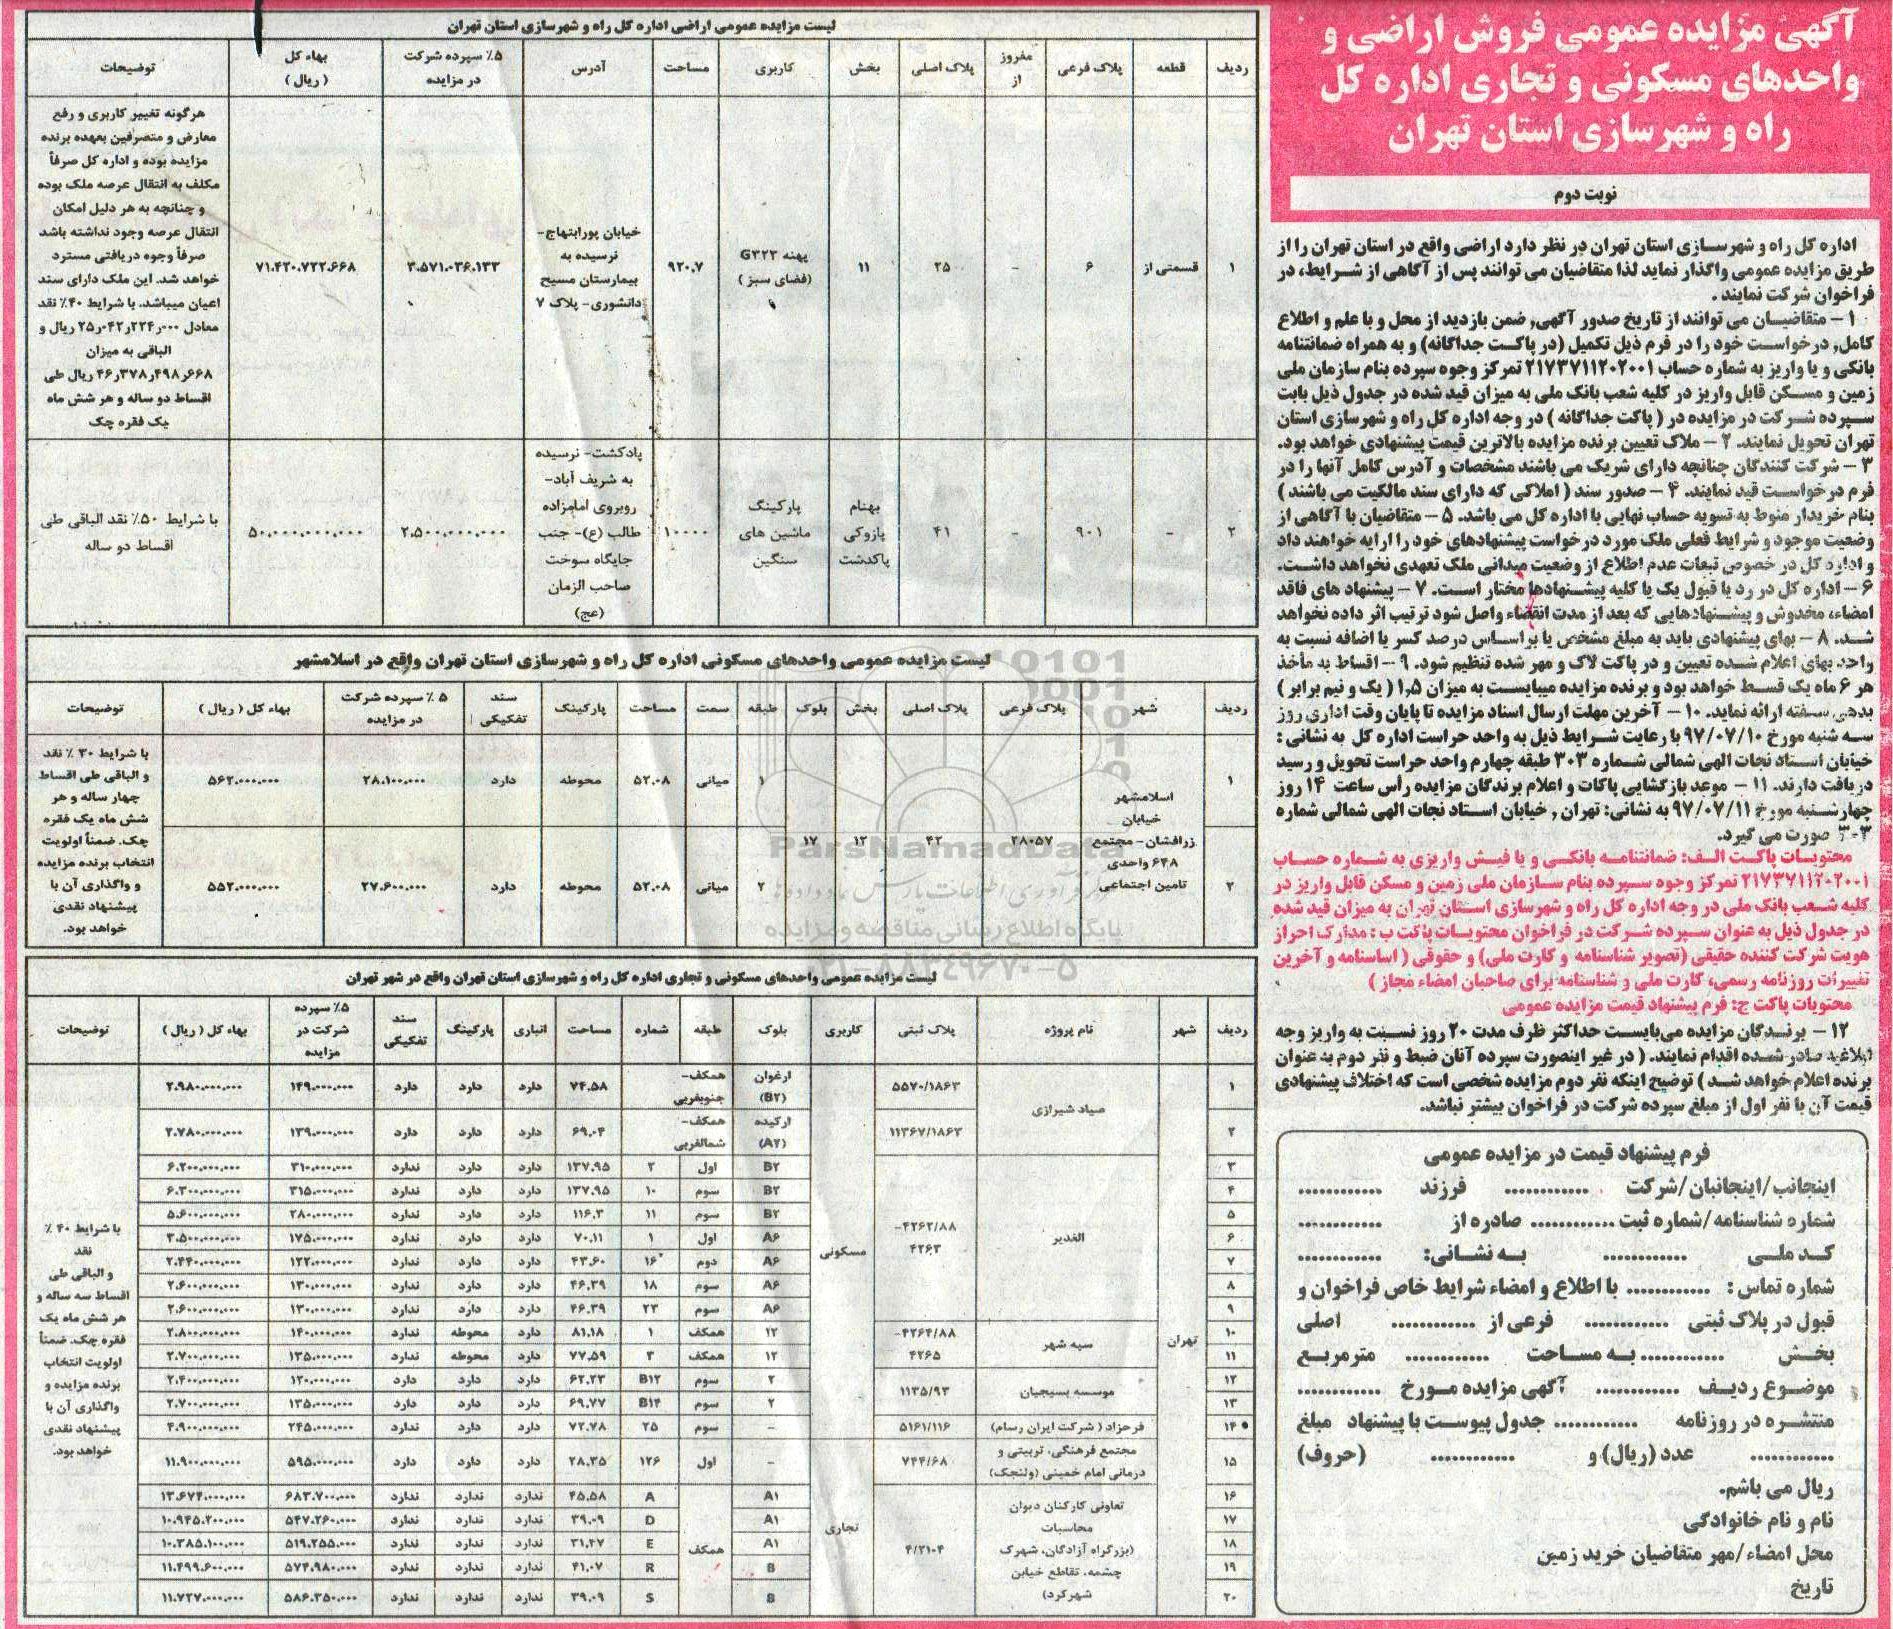 آگهی مزایده عمومی فروش اراضی و
واحدهای مسکونی و تجاری اداره کل
راه و شهرسازی استان تهران
نوبت دوم
اداره کل راه و شهرسازی استان تهران در نظر دارد اراضی واقع در استان تهران را از
طریق مزایده عمومی واگذار نماید لذا متقاضیان می توانند پس از آگاهی از شرایط، در
فراخوان شرکت نمایند.
۱- متقاضیان می توانند از تاریخ صدور آگهی، ضمن بازدید از محل و با علم و اطلاع
کامل، درخواست خود را در فرم ذیل تکمیل (در پاکت جداگانه) و به همراه ضمانتنامه
بانکی و یا واریز به شماره حساب ۲۱۷۳۷۱۱۲۰۲۰۰۱ تمرکز وجوه سپرده بنام سازمان ملی
زمین و مسکن قابل واریز در کلیه شعب بانک ملی به میزان قید شده در جدول ذیل بابت
سپرده شرکت در مزایده در (پاکت جداگانه) در وجه اداره کل راه و شهرسازی استان
تهران تحویل نمایند. ۲- ملاک تعیین برنده مزایده بالاترین قیمت پیشنهادی خواهد بود.
۳- شرکت کنندگان چنانچه دارای شریک می باشند مشخصات و آدرس کامل آنها را در
فرم درخواست قید نمایند. ۴- صدور سند (املاکی که دارای سند مالکیت می باشند)
بنام خریدار منوط به تسویه حساب نهایی با اداره کل می باشد. ۵- متقاضیان با آگاهی از
وضعیت موجود و شرایط فعلی ملک مورد درخواست پیشنهادهای خود را ارایه خواهند داد
و اداره کل در خصوص تبعات عدم اطلاع از وضعیت میدانی ملک تعهدی نخواهد داشت.
۶- اداره کل در رد یا قبول یک یا کلیه پیشنهادها مختار است. ۷- پیشنهاد های فاقد
امضاء، مخدوش و پیشنهادهایی که بعد از مدت انقضاء واصل شود ترتیب اثر داده نخواهد
شد. ۸- بهای پیشنهادی باید به مبلغ مشخص یا براساس درصد کسر یا اضافه نسبت به
واحد بهای اعلام شده تعیین و در پاکت لاک و مهر شده تنظیم شود. ۹- اقساط به مأخذ
هر ۶ ماه یک قسط خواهد بود و برنده مزایده میبایست به میزان ۱,۵ (یک و نیم برابر)
بدهی سفته ارائه نماید. ۱۰- آخرین مهلت ارسال اسناد مزایده تا پایان وقت اداری روز
سه شنبه مورخ ۹۷/۰۷/۱۰ با رعایت شرایط ذیل به واحد حراست اداره کل به نشانی:
خیابان استاد نجات الهی شمالی شماره ۳۰۳ طبقه چهارم واحد حراست تحویل و رسید
دریافت دارند. ۱۱- موعد بازگشایی پاکات و اعلام برندگان مزایده رأس ساعت ۱۴ روز
چهارشنبه مورخ ۹۷/۰۷/۱۱ به نشانی: تهران، خیابان استاد نجات الهی شمالی شماره
۳۰۳ صورت می گیرد.
محتویات پاکت الف: ضمانتنامه بانکی و یا فیش واریزی به شماره حساب
۲۱۷۳۷۱۱۲۰۲۰۰۱ تمرکز وجوه سپرده بنام سازمان ملی زمین و مسکن قابل واریز در
کلیه شعب بانک ملی در وجه اداره کل راه و شهرسازی استان تهران به میزان قید شده
در جدول ذیل به عنوان سپرده شرکت در فراخوان محتویات پاکت ب: مدارک احراز
هویت شرکت کننده حقیقی (تصویر شناسنامه و کارت ملی) و حقوقی (اساسنامه و آخرین
تغییرات روزنامه رسمی، کارت ملی و شناسنامه برای صاحبان امضاء مجاز)
محتویات پاکت ج: فرم پیشنهاد قیمت مزایده عمومی
۱۲- برندگان مزایده می‌بایست حداکثر ظرف مدت ۲۰ روز نسبت به واریز وجه
ابلاغیه صادر شده اقدام نمایند. (در غیر اینصورت سپرده آنان ضبط و نفر دوم به عنوان
برنده اعلام خواهد شد) توضیح اینکه نفر دوم مزایده شخصی است که اختلاف پیشنهادی
قیمت آن با نفر اول از مبلغ سپرده شرکت در فراخوان بیشتر نباشد.
فرم پیشنهاد قیمت در مزایده عمومی
اینجانب/اینجانبان/شرکت ............ فرزند ............
شماره شناسنامه/شماره ثبت ............ صادره از ............
کد ملی ............ به نشانی: ............
شماره تماس: ............ با اطلاع و امضاء شرایط خاص فراخوان و
قبول در پلاک ثبتی ............ فرعی از ............ اصلی
بخش ............ به مساحت ............ مترمربع
موضوع ردیف ............ آگهی مزایده مورخ ............
منتشره در روزنامه ............ جدول پیوست با پیشنهاد مبلغ
............ عدد (ریال) و ............ (حروف)
ریال می باشم.
نام و نام خانوادگی
محل امضاء/مهر متقاضیان خرید زمین
تاریخ
لیست مزایده عمومی اراضی اداره کل راه و شهرسازی استان تهران
ردیف قطعه پلاک فرعی مفروز از پلاک اصلی بخش کاربری مساحت آدرس ۵٪ سپرده شرکت در مزایده بهاء کل (ریال) توضیحات
۱ قسمتی از ۶ - ۲۵ ۱۱ پهنه G۳۲۳ (فضای سبز) ۹۲۰.۷ خیابان پورابتهاج- نرسیده به بیمارستان مسیح دانشوری- پلاک ۷ ۳.۵۷۱.۰۳۶.۱۳۳ ۷۱.۴۲۰.۷۲۲.۶۶۸
هرگونه تغییر کاربری و رفع
معارض و متصرفین بعهده برنده
مزایده بوده و اداره کل صرفاً
مکلف به انتقال عرصه ملک بوده
و چنانچه به هر دلیل امکان
انتقال عرصه وجود نداشته باشد
صرفاً وجوه دریافتی مسترد
خواهد شد. این ملک دارای سند
اعیان میباشد. با شرایط ۴۰٪ نقد
معادل ۲۵٫۰۴۲٫۲۲۴٫۰۰۰ ریال و
الباقی به میزان
۴۶٫۳۷۸٫۴۹۸٫۶۶۸ ریال طی
اقساط دو ساله و هر شش ماه
یک فقره چک
۲ - ۹۰۱ - ۴۱ بهنام پازوکی پاکدشت پارکینگ ماشین های سنگین ۱۰۰۰۰ پادکشت- نرسیده به شریف آباد- روبروی امامزاده طالب (ع)- جنب جایگاه سوخت صاحب الزمان (عج) ۲.۵۰۰.۰۰۰.۰۰۰ ۵۰.۰۰۰.۰۰۰.۰۰۰ با شرایط ۵۰٪ نقد الباقی طی اقساط دو ساله
لیست مزایده عمومی واحدهای مسکونی اداره کل راه و شهرسازی استان تهران واقع در اسلامشهر
ردیف شهر پلاک فرعی پلاک اصلی بخش بلوک طبقه سمت مساحت پارکینگ سند تفکیکی ۵٪ سپرده شرکت در مزایده بهاء کل (ریال) توضیحات
۱ اسلامشهر خیابان زرافشان- مجتمع ۶۴۸ واحدی تامین اجتماعی ۲۸۰۵۷ ۴۲ ۱۲ ۱۷ ۱ میانی ۵۲.۰۸ محوطه دارد ۲۸.۱۰۰.۰۰۰ ۵۶۲.۰۰۰.۰۰۰
۲ ۲ میانی ۵۲.۰۸ محوطه دارد ۲۷.۶۰۰.۰۰۰ ۵۵۲.۰۰۰.۰۰۰
با شرایط ۳۰٪ نقد
و الباقی طی اقساط
چهار ساله و هر
شش ماه یک فقره
چک. ضمناً اولویت
انتخاب برنده مزایده
و واگذاری آن با
پیشنهاد نقدی
خواهد بود.
ParsNamadData
پایگاه اطلاع رسانی مناقصه و مزایده
۰۲۱-۸۸۳۴۹۶۷۰-۵
لیست مزایده عمومی واحدهای مسکونی و تجاری اداره کل راه و شهرسازی استان تهران واقع در شهر تهران
ردیف شهر نام پروژه پلاک ثبتی کاربری بلوک طبقه شماره مساحت انباری پارکینگ سند تفکیکی ۵٪ سپرده شرکت در مزایده بهاء کل (ریال) توضیحات
۱ تهران صیاد شیرازی ۵۵۷۰/۱۸۶۳ مسکونی ارغوان (B۲) همکف- جنوبغربی ۷۴.۵۸ دارد دارد دارد ۱۴۹.۰۰۰.۰۰۰ ۲.۹۸۰.۰۰۰.۰۰۰
۲ ۱۱۳۶۷/۱۸۶۳ ارکیده (A۲) همکف- شمالغربی ۶۹.۰۴ دارد دارد دارد ۱۳۹.۰۰۰.۰۰۰ ۲.۷۸۰.۰۰۰.۰۰۰
۳ الغدیر ۴۲۶۲/۸۸- ۴۲۶۳ B۲ اول ۲ ۱۳۷.۹۵ دارد دارد ندارد ۳۱۰.۰۰۰.۰۰۰ ۶.۲۰۰.۰۰۰.۰۰۰
۴ B۲ سوم ۱۰ ۱۳۷.۹۵ دارد دارد ندارد ۳۱۵.۰۰۰.۰۰۰ ۶.۳۰۰.۰۰۰.۰۰۰
۵ B۲ سوم ۱۱ ۱۱۶.۳ دارد دارد ندارد ۲۸۰.۰۰۰.۰۰۰ ۵.۶۰۰.۰۰۰.۰۰۰
۶ A۶ اول ۱ ۷۰.۱۱ دارد دارد ندارد ۱۷۵.۰۰۰.۰۰۰ ۳.۵۰۰.۰۰۰.۰۰۰
۷ A۶ دوم ۱۶ ۴۳.۶۰ دارد دارد ندارد ۱۲۲.۰۰۰.۰۰۰ ۲.۴۴۰.۰۰۰.۰۰۰
۸ A۶ سوم ۱۸ ۴۶.۳۹ دارد دارد ندارد ۱۳۰.۰۰۰.۰۰۰ ۲.۶۰۰.۰۰۰.۰۰۰
۹ A۶ سوم ۲۳ ۴۶.۳۹ دارد دارد ندارد ۱۳۰.۰۰۰.۰۰۰ ۲.۶۰۰.۰۰۰.۰۰۰
۱۰ سپه شهر ۴۲۶۴/۸۸- ۴۲۶۵ ۱۲ همکف ۱ ۸۱.۱۸ دارد محوطه ندارد ۱۴۰.۰۰۰.۰۰۰ ۲.۸۰۰.۰۰۰.۰۰۰
۱۱ ۱۲ همکف ۳ ۷۷.۵۹ دارد محوطه ندارد ۱۳۵.۰۰۰.۰۰۰ ۲.۷۰۰.۰۰۰.۰۰۰
۱۲ موسسه بسیجیان ۱۱۳۵/۹۳ ۲ سوم B۱۲ ۶۲.۲۳ دارد دارد ندارد ۱۲۰.۰۰۰.۰۰۰ ۲.۴۰۰.۰۰۰.۰۰۰
۱۳ ۲ سوم B۱۴ ۶۹.۷۷ دارد دارد ندارد ۱۳۵.۰۰۰.۰۰۰ ۲.۷۰۰.۰۰۰.۰۰۰
۱۴ فرحزاد (شرکت ایران رسام) ۵۱۶۱/۱۱۶ - سوم ۲۵ ۷۲.۷۸ دارد دارد ندارد ۲۴۵.۰۰۰.۰۰۰ ۴.۹۰۰.۰۰۰.۰۰۰
۱۵ مجتمع فرهنگی، تربیتی و درمانی امام خمینی (ولنجک) ۷۴۴/۶۸ - اول ۱۲۶ ۲۸.۳۵ دارد دارد دارد ۵۹۵.۰۰۰.۰۰۰ ۱۱.۹۰۰.۰۰۰.۰۰۰
۱۶ تعاونی کارکنان دیوان محاسبات (بزرگراه آزادگان، شهرک چشمه، تقاطع خیابن شهرکرد) ۴/۲۱۰۴ تجاری A۱ همکف A ۴۵.۵۸ ندارد ندارد ندارد ۶۸۳.۷۰۰.۰۰۰ ۱۳.۶۷۴.۰۰۰.۰۰۰
۱۷ A۱ D ۳۹.۰۹ ندارد ندارد ندارد ۵۴۷.۲۶۰.۰۰۰ ۱۰.۹۴۵.۲۰۰.۰۰۰
۱۸ A۱ E ۳۱.۴۷ ندارد ندارد ندارد ۵۱۹.۲۵۵.۰۰۰ ۱۰.۳۸۵.۱۰۰.۰۰۰
۱۹ B R ۴۱.۰۷ ندارد ندارد ندارد ۵۷۴.۹۸۰.۰۰۰ ۱۱.۴۹۹.۶۰۰.۰۰۰
۲۰ B S ۳۹.۰۹ ندارد ندارد ندارد ۵۸۶.۳۵۰.۰۰۰ ۱۱.۷۲۷.۰۰۰.۰۰۰
با شرایط ۴۰٪
نقد
و الباقی طی
اقساط سه ساله و
هر شش ماه یک
فقره چک. ضمناً
اولویت انتخاب
برنده مزایده و
واگذاری آن با
پیشنهاد نقدی
خواهد بود.